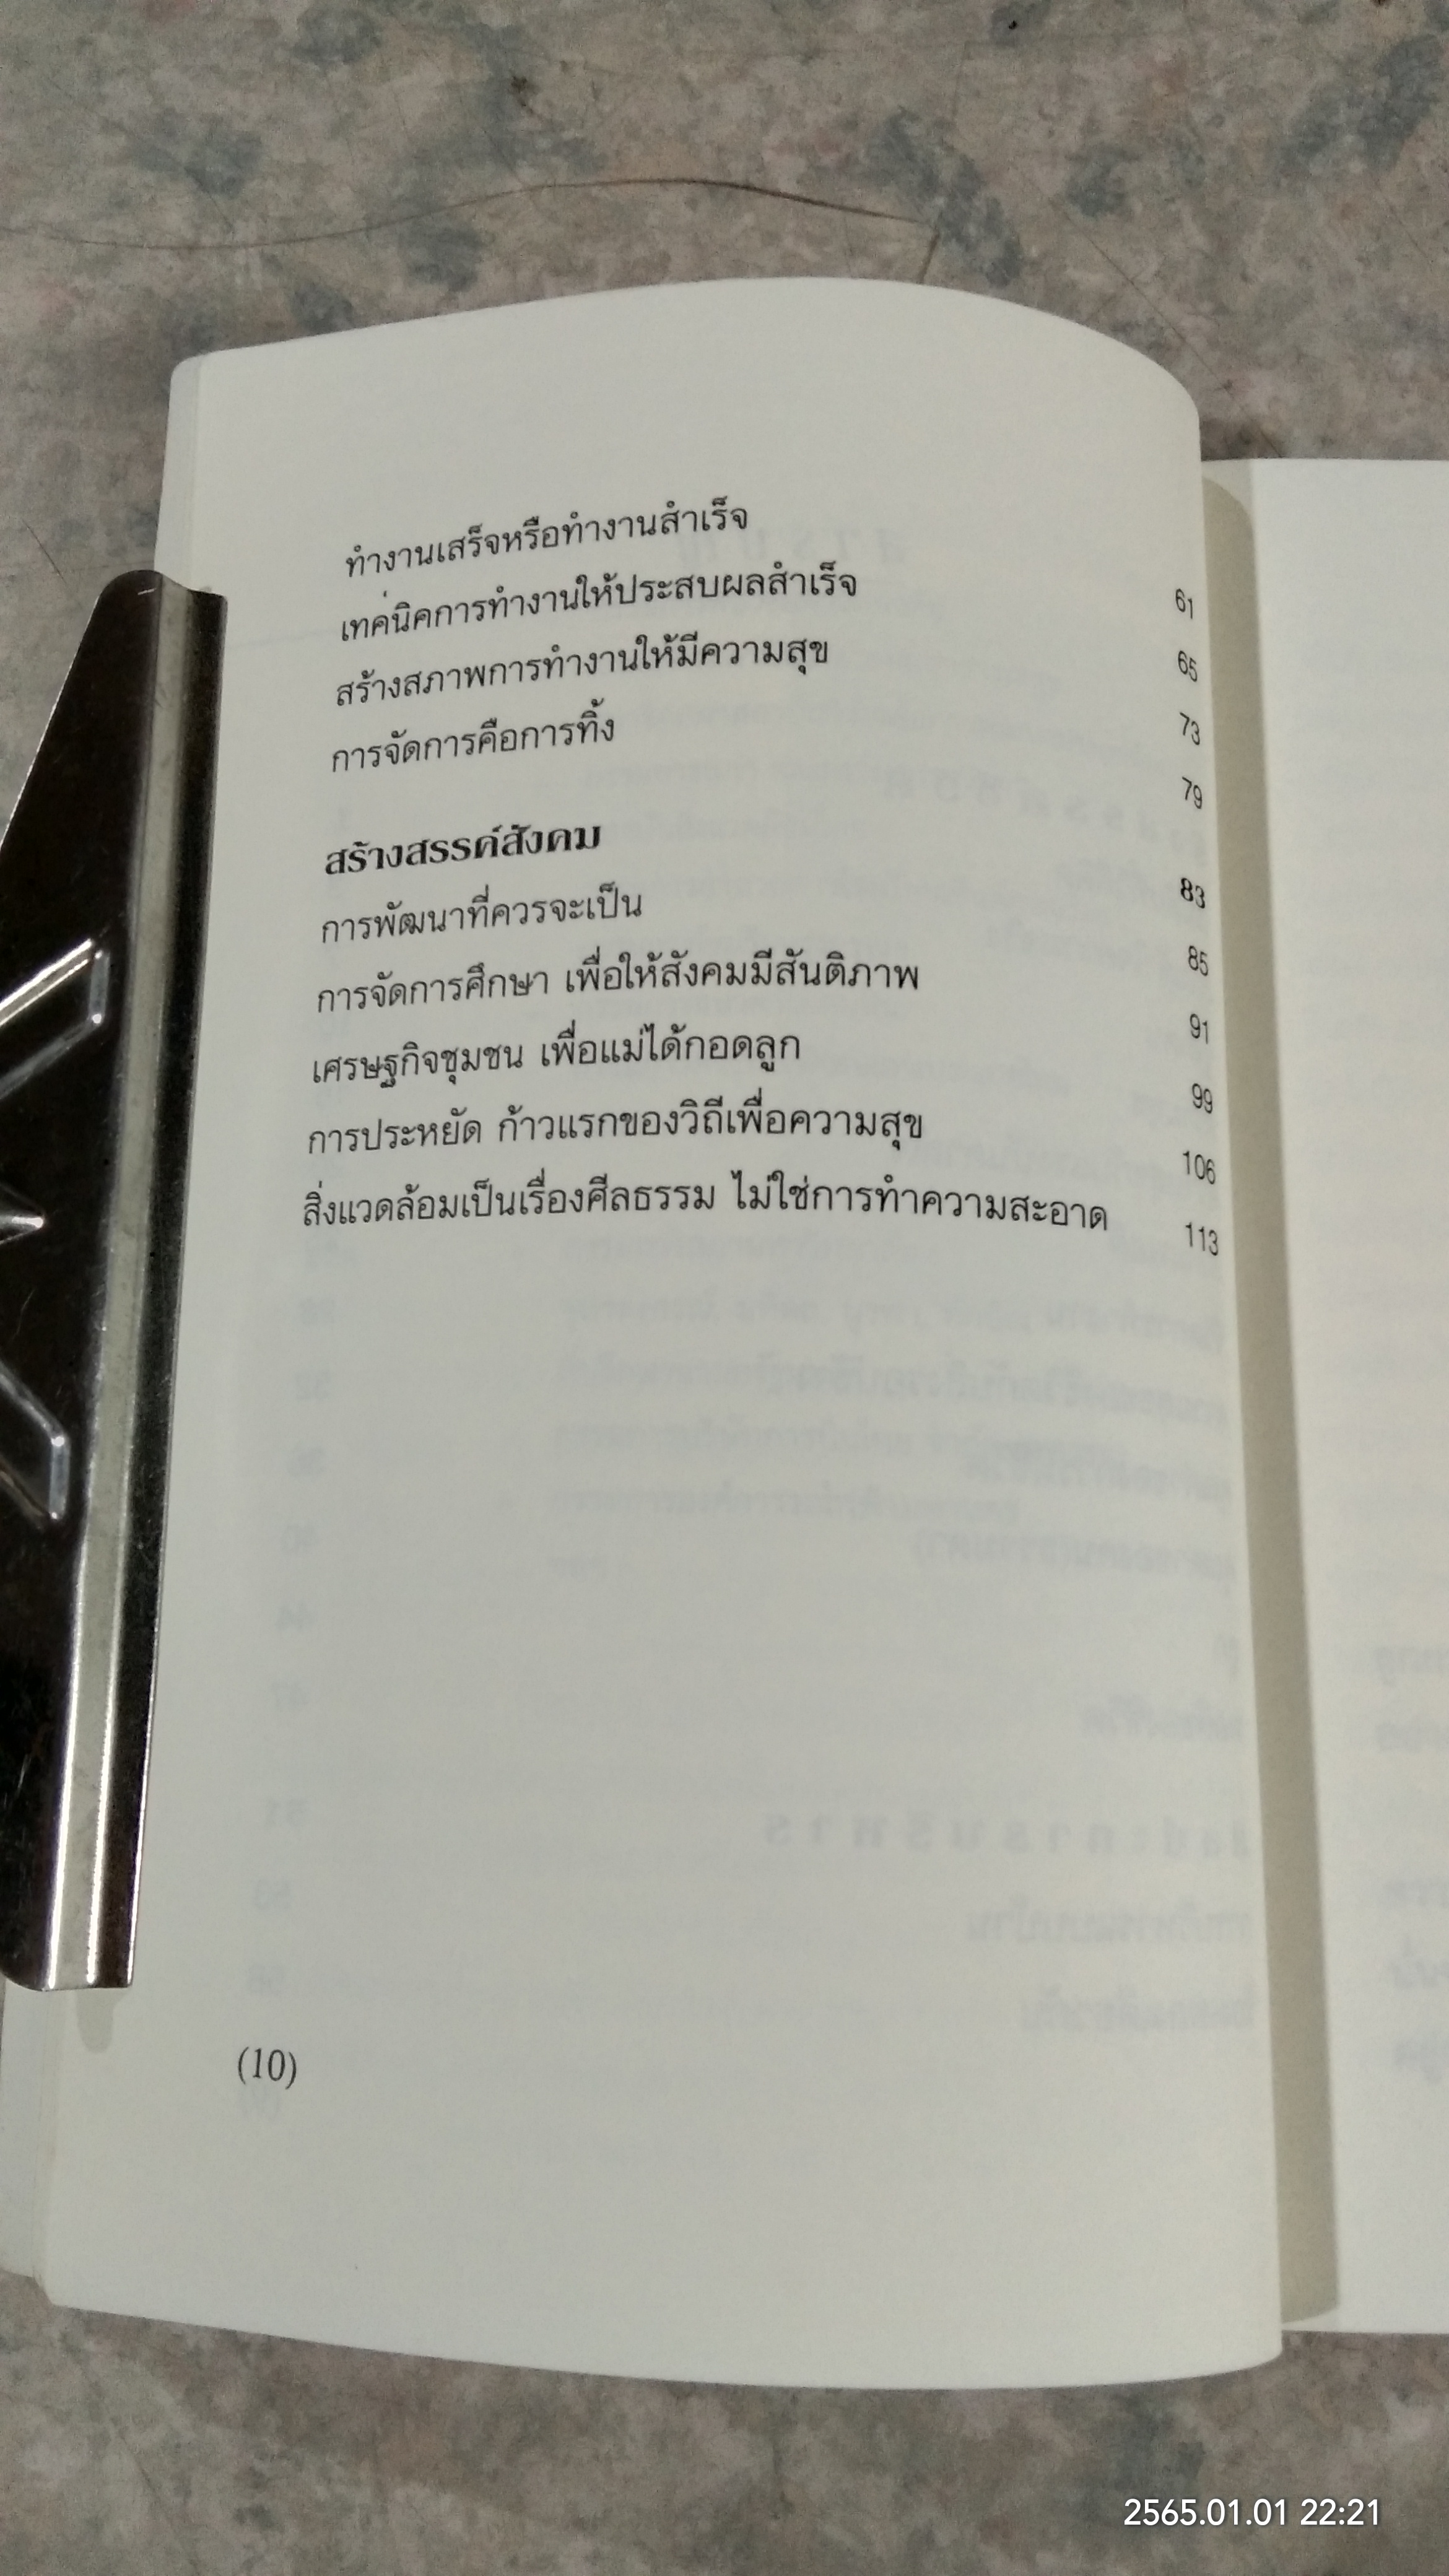 ทำงานเสร็จหรือทำงานสำเร็จ 61
เทค่นิคการทำงานให้ประสบผลสำเร็จ 65
สร้างสภาพการทำงานให้มีความสุข 73
การจัดการคือการทิ้ง 79
สร้างสรรค์สังคม 83
การพัฒนาที่ควรจะเป็น 85
การจัดการศึกษา เพื่อให้สังคมมีสันติภาพ 91
เศรษฐกิจชุมชน เพื่อแม่ได้กอดลูก 99
การประหยัด ก้าวแรกของวิถีเพื่อความสุข 106
สิ่งแวดล้อมเป็นเรื่องศีลธรรม ไม่ใช่การทำความสะอาด 113
(10)
2565.01.01 22:21